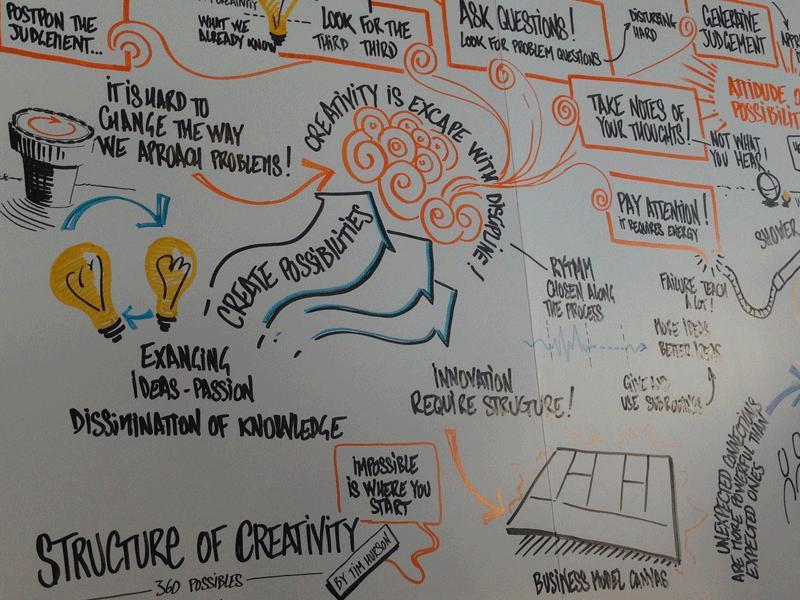 POSTPON THE
JUDGEMENT...
WHAT WE
ALREADY KNOW
LOOK FOR THE
THIRD THIRD
ASK QUESTIONS!
LOOK FOR PROBLEM QUESTIONS
DISTURBING
HARD
GENERATIVE
JUDGEMENT
IT IS HARD TO
CHANGE THE WAY
WE APROACH PROBLEMS!
CREATIVITY IS EXCAPE WITH DISCIPLINE!
TAKE NOTES OF
YOUR THOUGHTS!
NOT WHAT
YOU HEAR!
PAY ATTENTION!
IT REQUIRES ENERGY
SHOWER
CREATE POSSIBILITIES
RYTMM
CHOSEN ALONG
THE PROCESS
FAILURE TEACH
A LOT!
MORE IDEAS
BETTER IDEAS
GIVE AND
EXANGING
IDEAS-PASSION
DISSIMINATION OF KNOWLEDGE
INNOVATION
REQUIRE STRUGTURE!
IMPOSSIBLE
IS WHERE YOU
START
STRUCTURE OF CREATIVITY
360 POSSIBLES
BY TIM HURSON
BUSINESS MODEL CANVAS
UNEXPECTED CONNECTIONS
ARE MORE POWERFUL THAN
EXPECTED ONES